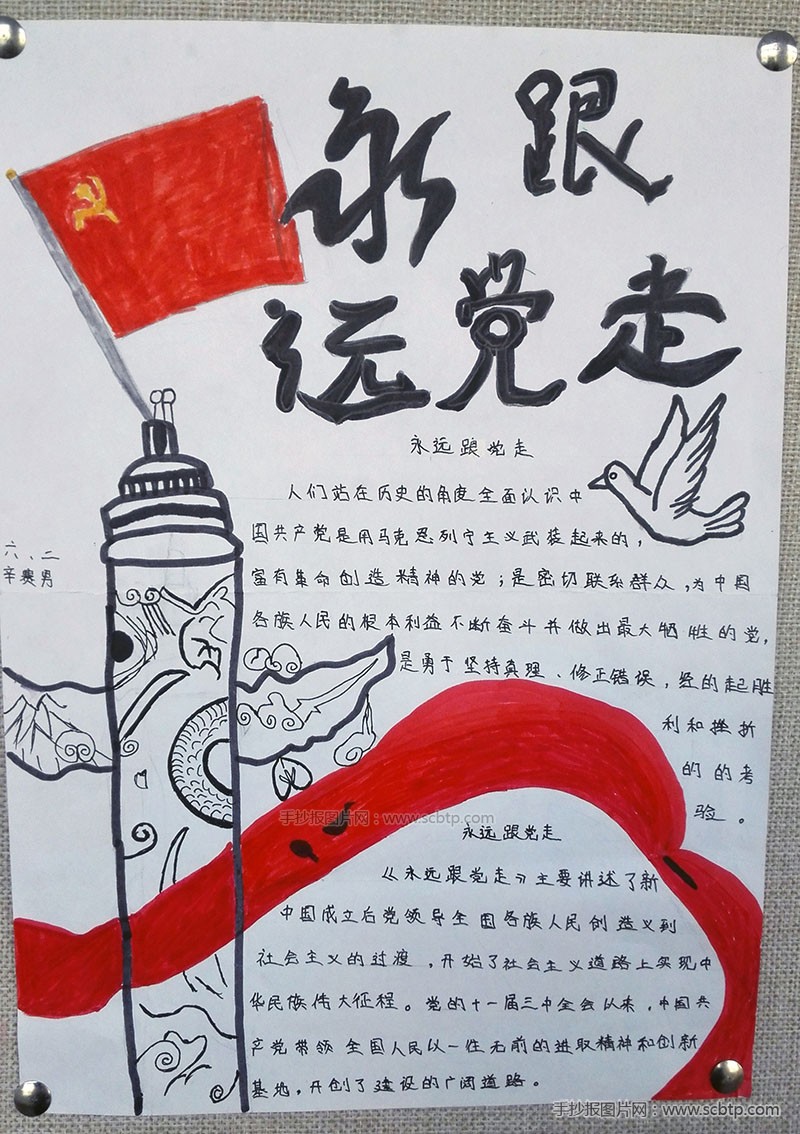 永 跟
远 党 走
永远跟党走
人们站在历史的角度全面认识中
国共产党是用马克思列宁主义武装起来的，
六、二
辛奥男
富有革命创造精神的党；是密切联系群众，为中国
各族人民的根本利益不断奋斗并做出最大牺牲的党，
是勇于坚持真理、修正错误，经的起胜
利和挫折
的的考
验。
手抄报图片网：www.scbtp.com
永远跟党走
《永远跟党走》主要讲述了新
中国成立后党领导全国各族人民创造义到
社会主义的过渡，开始了社会主义道路上实现中
华民族伟大征程。党的十一届三中全会以来，中国共
产党带领全国人民以一往无前的进取精神和创新
基地，开创了建设的广阔道路。
手抄报图片网：www.scbtp.com